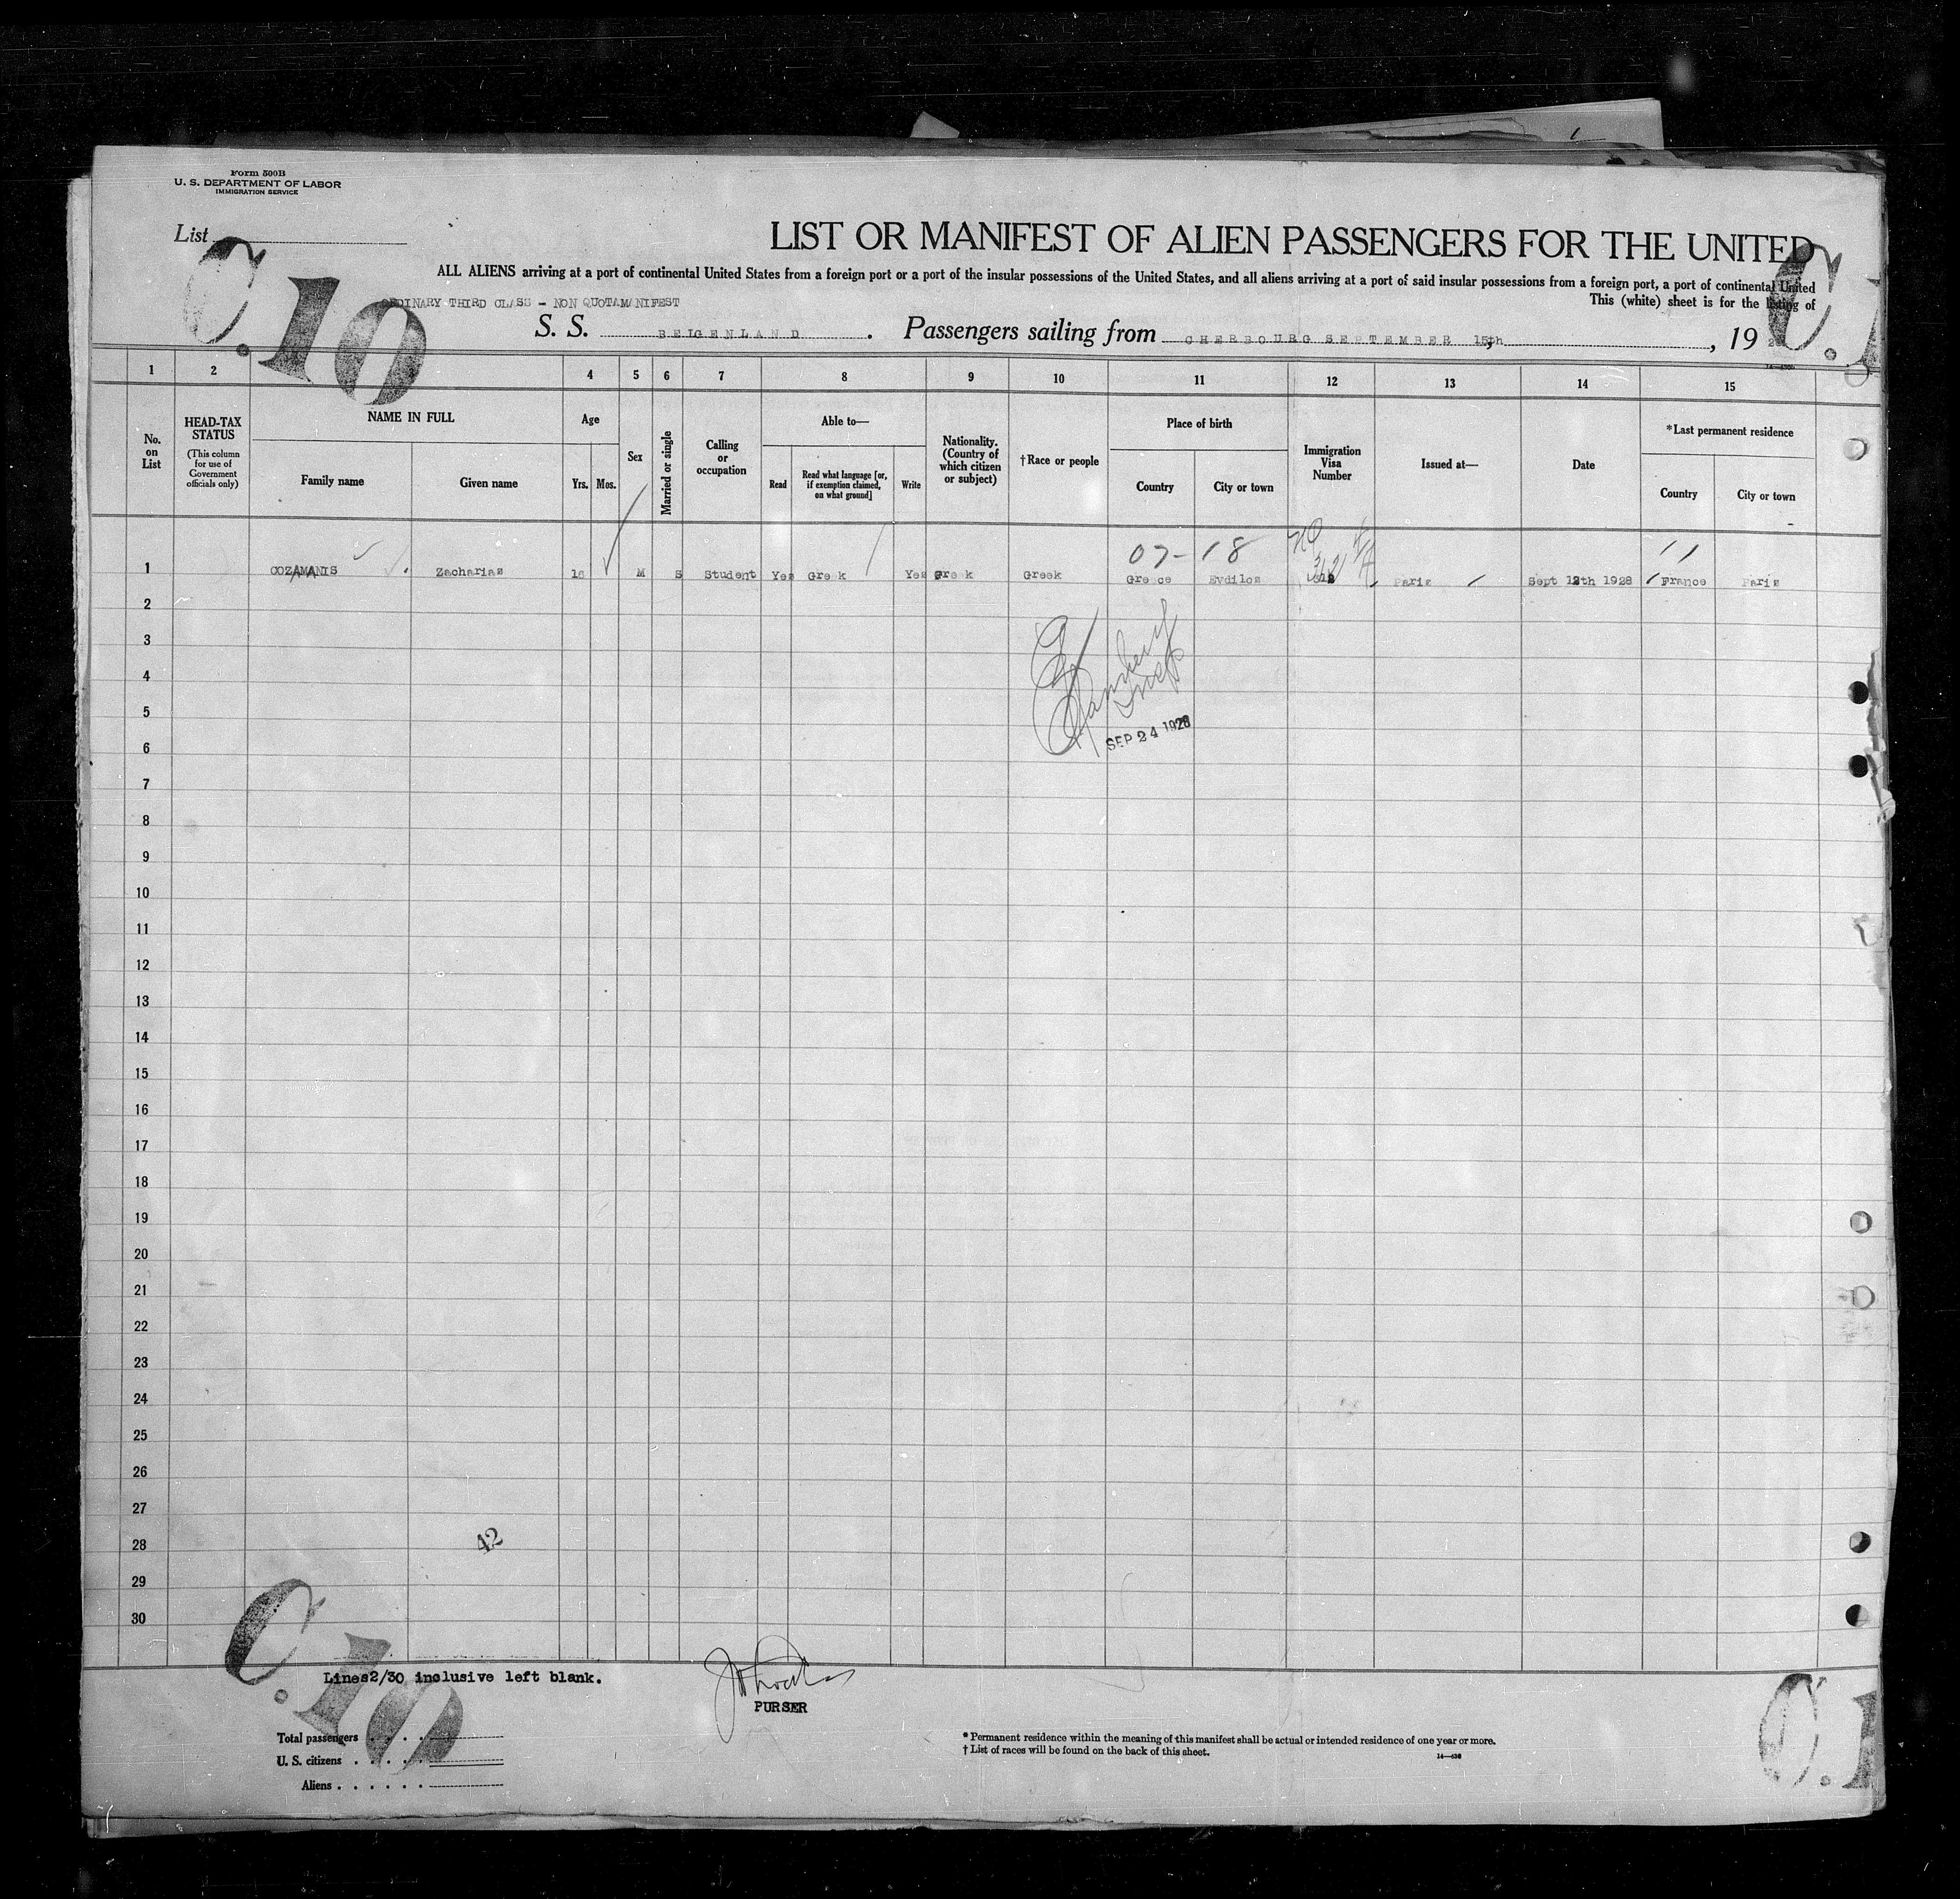 Form 500B
U. S. DEPARTMENT OF LABOR
IMMIGRATION SERVICE
List
C.10
LIST OR MANIFEST OF ALIEN PASSENGERS FOR THE UNITED
ALL ALIENS arriving at a port of continental United States from a foreign port or a port of the insular possessions of the United States, and all aliens arriving at a port of said insular possessions from a foreign port, a port of continental United
This (white) sheet is for the listing of
ORDINARY THIRD CLASS - NON QUOTA MANIFEST
S. S. BELGENLAND. Passengers sailing from CHERBOURG SEPTEMBER 15th, 19
1 2 4 5 6 7 8 9 10 11 12 13 14 15
No. on List
HEAD-TAX STATUS
(This column for use of Government officials only)
NAME IN FULL
Family name
Given name
Age
Yrs. Mos.
Sex
Married or single
Calling or occupation
Able to—
Read
Read what language [or, if exemption claimed, on what ground]
Write
Nationality. (Country of which citizen or subject)
†Race or people
Place of birth
Country
City or town
Immigration Visa Number
Issued at—
Date
*Last permanent residence
Country
City or town
07-18
11
1 COZAMANIS Zacharias 18 M S Student Yes Greek Yes Greek Greek Greece Evdilos Paris Sept 12th 1928 France Paris
2
3
4
5
6
SEP 24 1928
7
8
9
10
11
12
13
14
15
16
17
18
19
20
21
22
23
24
25
26
27
28
42
29
30
C.10
Lines2/30 inclusive left blank.
PURSER
Total passengers
U. S. citizens
Aliens
* Permanent residence within the meaning of this manifest shall be actual or intended residence of one year or more.
† List of races will be found on the back of this sheet.